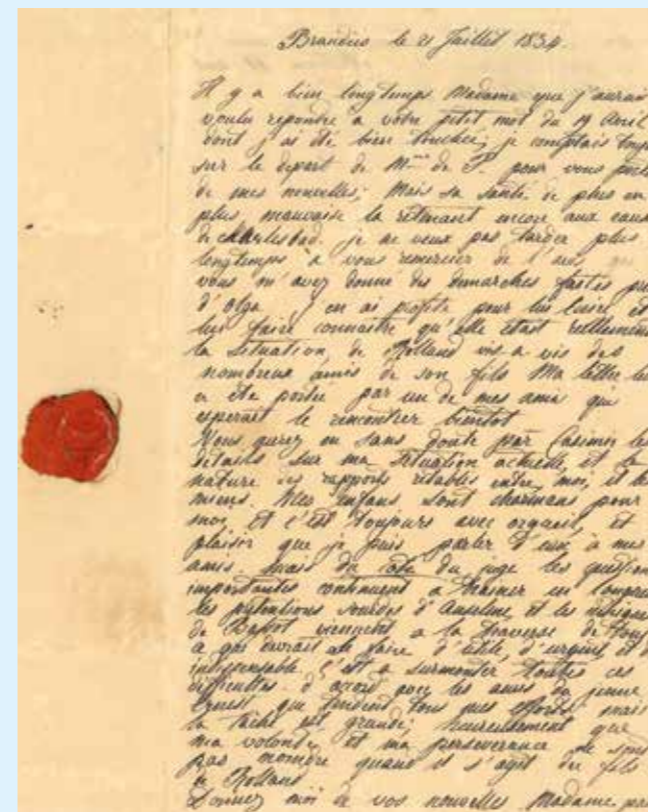 Brandeis le 21 Juillet 1834.
Il y a bien longtemps Madame que j'aurais
voulu repondre a votre petit mot du 19 Avril
dont j'ai été bien touchée, je comptais
sur le depart de Mme de P. pour vous
de mes nouvelles; Mais sa santé de plus en
plus mauvaise la retenant encore aux eaux
de je ne veux pas tarder plus
longtemps a vous remercier de l'avis que
vous m'avez donné des demarches faites
d'Olga j'en ai profité pour lui et
lui faire connaitre qu'elle etait reellement
la Situation de Rolland vis a vis des
nombreux amis de son fils Ma lettre lui
a été portée par un de mes amis qui
esperait le rencontrer bientot
Vous aurez eu sans doute par Casimir les
details sur ma Situation actuelle, et la
nature des rapports établis entre moi, et les
miens. Mes enfans sont charmans pour
moi, et c'est toujours avec orgueil, et
plaisir que je puis parler d'eux à mes
amis. Mais du coté du juge les questions
importantes continuent a trainer en longueur
les pretentions sourdes d'Anselme, et les
de viennent a la traverse de tous
d'utile, d'urgent et
indispensable c'est a surmonter toutes ces
difficultes d'accord avec les amis du jeune
Ernest que tendent tous mes efforts mais
la tache est grande; heureusement que
ma volonté et ma perseverance ne sont
pas moindre quand il s'agit du fils
de Rolland
Donnez moi de vos nouvelles Madame